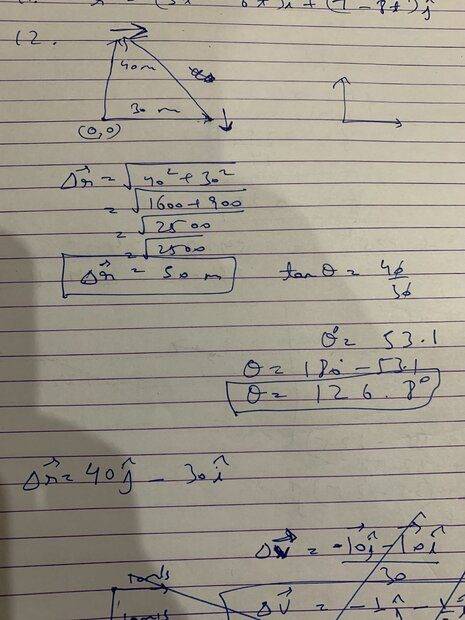 12.
40 m
30 m
(0,0)
Δr⃗ = √40² + 30²
= √1600 + 900
= √2500
= √2500
Δr⃗ = 50 m
tan θ = 40/30
θ = 53.1
θ = 180 - 53.1
θ = 126.8°
Δr⃗ = 40ĵ - 30î
Δv⃗ = -10ĵ - 10î / 30
10m/s
Δv⃗ = -1